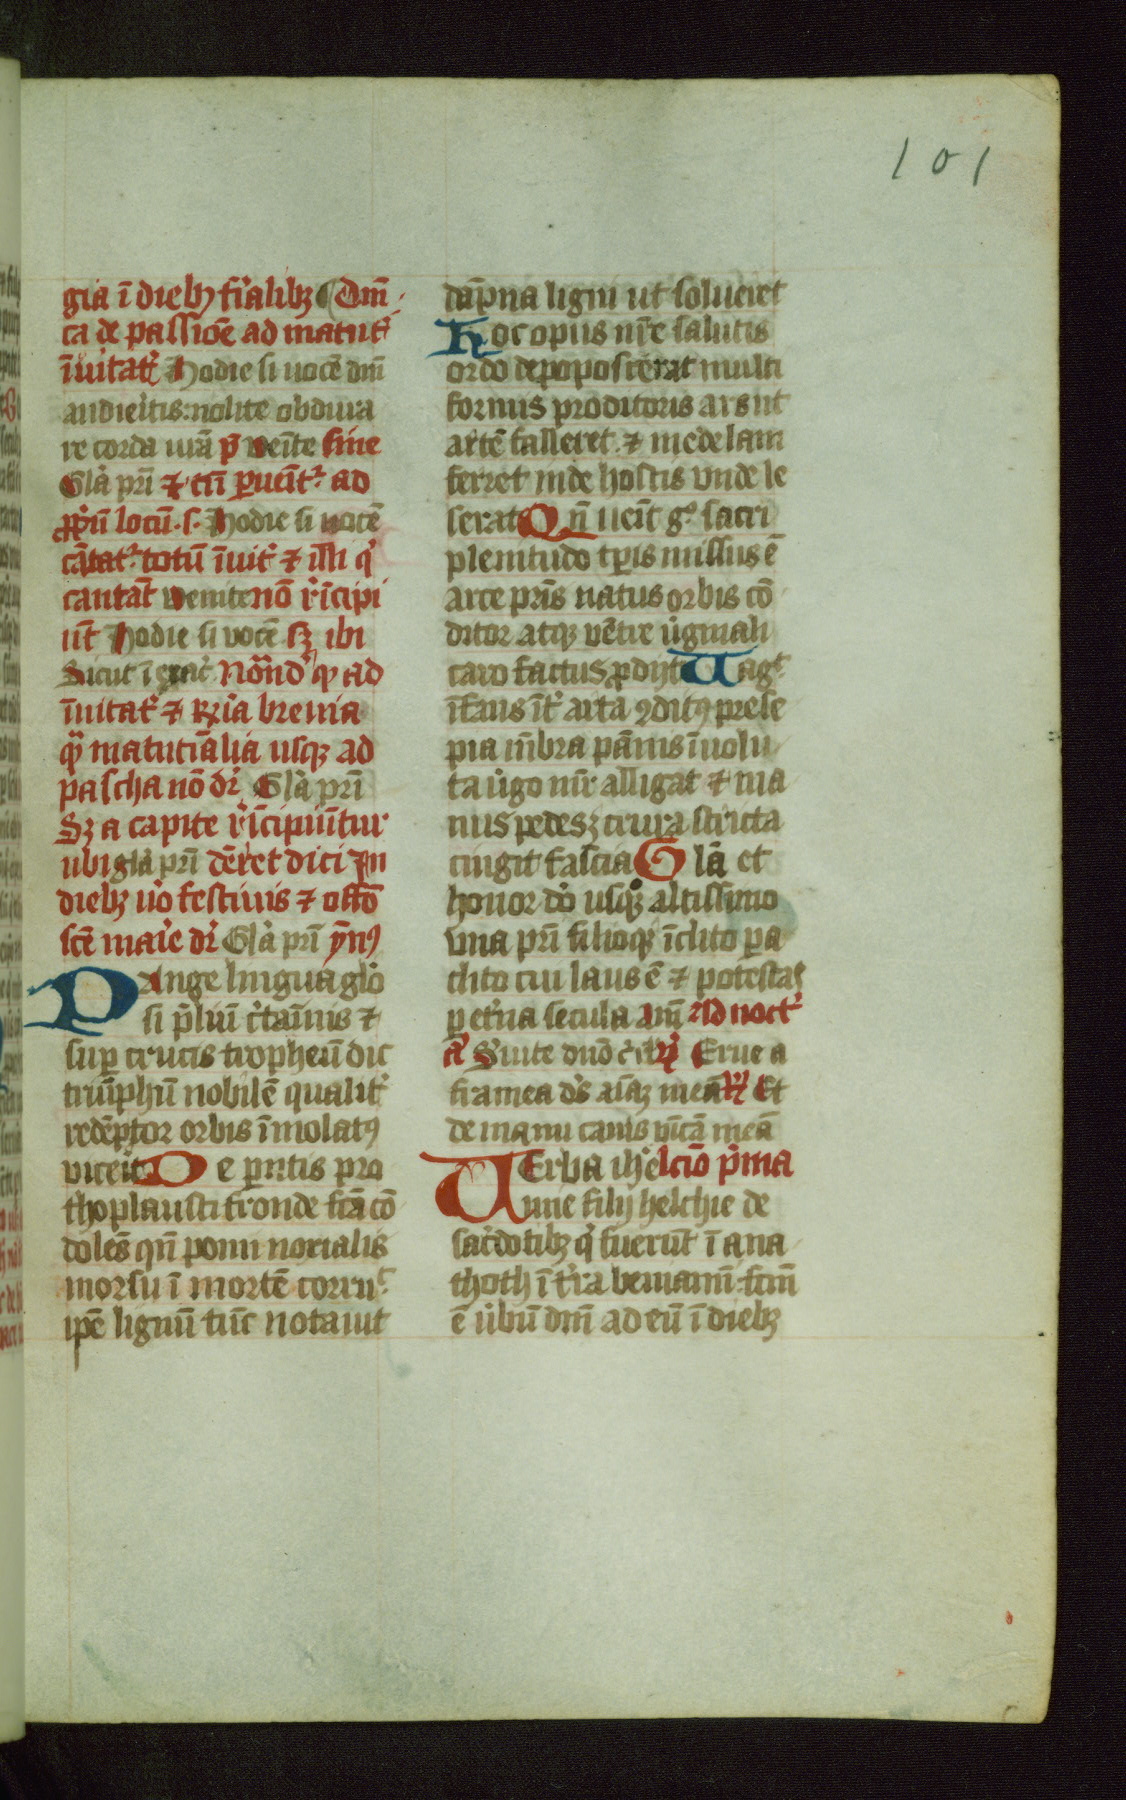 101
gia ī dieb9 fīalibꝫ Dn̄i
ca de passiōe ad matut͛
īuitat͛ Hodie si uocē dn̄i
audieritis: nolite obdura
re corda urā p̄ Venite sine
Glā pri ⁊ cū puēit͛ ad
ꝓpriū locū .s. Hodie si uocē
cātat͛ totū īuit͛ ⁊ illi qͥ
cantāt Venite nō rīcipi
ūt Hodie si vocē sꝫ ibi
Sicut ī exac͛ Nōand' qͥ ad
īuitat͛ ⁊ Rx͞ia breuia
qͥ matutīalia usqꝫ ad
pascha nō dr͛ Glā pri
Sꝫ a capite rīcipiūtur
ubi glā pri dēret dici In
diebꝫ u͛o festiuis ⁊ offō
scē marie dr͛ Glā pri ȳn9
PAnge lingua glo
si p̄liū c͛tāinis ⁊
sup crucis tropheū dic
triūphū nobilē qualit͛
redēptor orbis īmolat9
vicerit De pn̄tis pro
thoplausti fronde frā cō
dolēs qn̄ pomi noxialis
morsu ī mortē corru͛
ipē lignū tūc notauit
dāpna ligni ut solueret
Hoc opus nr̄e salutis
ordo depoposcerat multi
formis proditoris ars ut
artē falleret ⁊ medelam
ferret inde hostis vnde le
serat Qn̄ uēit g͛ sacri
plenitudo tp̄is missus ē
arce pr̄is natus orbis cō
ditor atqꝫ vētre u͛ginali
caro factus ꝓdijt Uagͭ
īfans īt͛ arta ꝯdit9 prese
pia mēbra pānis īuolu
ta u͛go mr̄ alligat ⁊ ma
nus pedesꝫ crura stricta
cingit fascia Glā et
honor dō usqꝫ altissimo
vna pri filioqꝫ īclito pa
clito cui laus ē ⁊ potestas
p et͛na secula Am̄ Ad noct͛
ā Siuite dn̄o c͛ cibꝯ ꝟ Erue a
framea ds̄ aīaꝫ meā ℟ Et
de manu canis vn̄icā meā
VErba ihe lc̄io p̄ma
mie filij helchie de
sac͛dotibꝫ qͥ fuerūt ī ana
thoth ī t͛ra beniamī fcm̄
ē u͛bū dn̄i ad eū ī diebꝫ